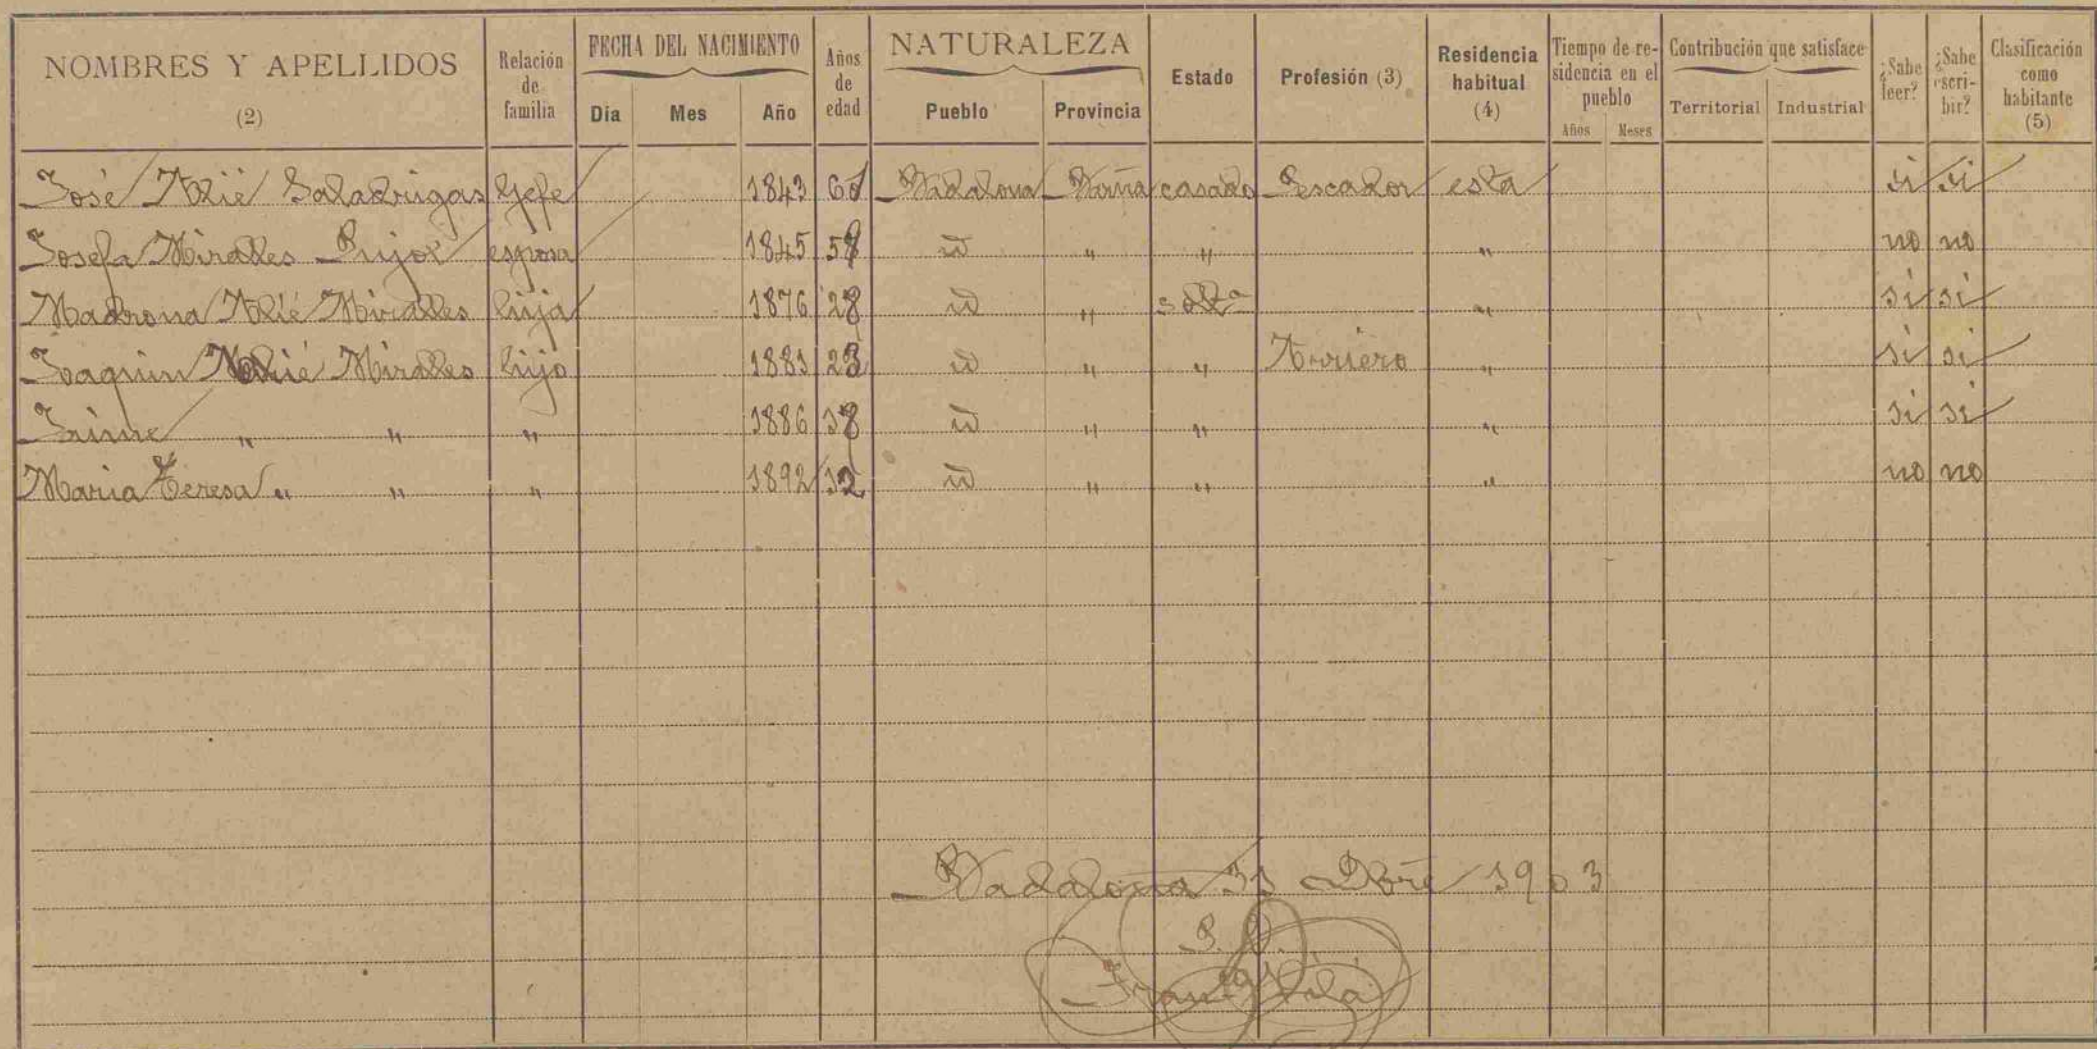 NOMBRES Y APELLIDOS (2) Relación de familia FECHA DEL NACIMIENTO Día Mes Año Años de edad NATURALEZA Pueblo Provincia Estado Profesión (3) Residencia habitual (4) Tiempo de residencia en el pueblo Años Meses Contribución que satisface Territorial Industrial ¿Sabe leer? ¿Sabe escribir? Clasificación como habitante (5)
José Alié Saladrigas Gefe 1843 60 Badalona Barña casado Pescador esta si si
Josefa Miralles Pujol esposa 1845 58 id " " " no no
Madrona Alié Miralles hija 1876 28 id " solta " si si
Joaquin Alié Miralles hijo 1881 23 id " " Arriero " si si
Jaime " " " 1886 18 id " " " si si
Maria Teresa " " " 1892 12 id " " " no no
Badalona 31 Dbre 1903
P. O.
Franco Vilá